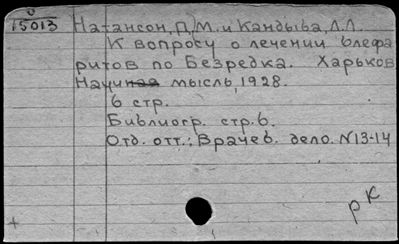 15013
Натансон, Д.М. и Кандыба, Л.Л.
К вопросу о лечении блефа
ритов по Безредка. Харьков
Научная мысль, 1928.
6 стр.
Библиогр. стр. 6.
Отд. отт.: Врачеб. дело. N13-14
рк